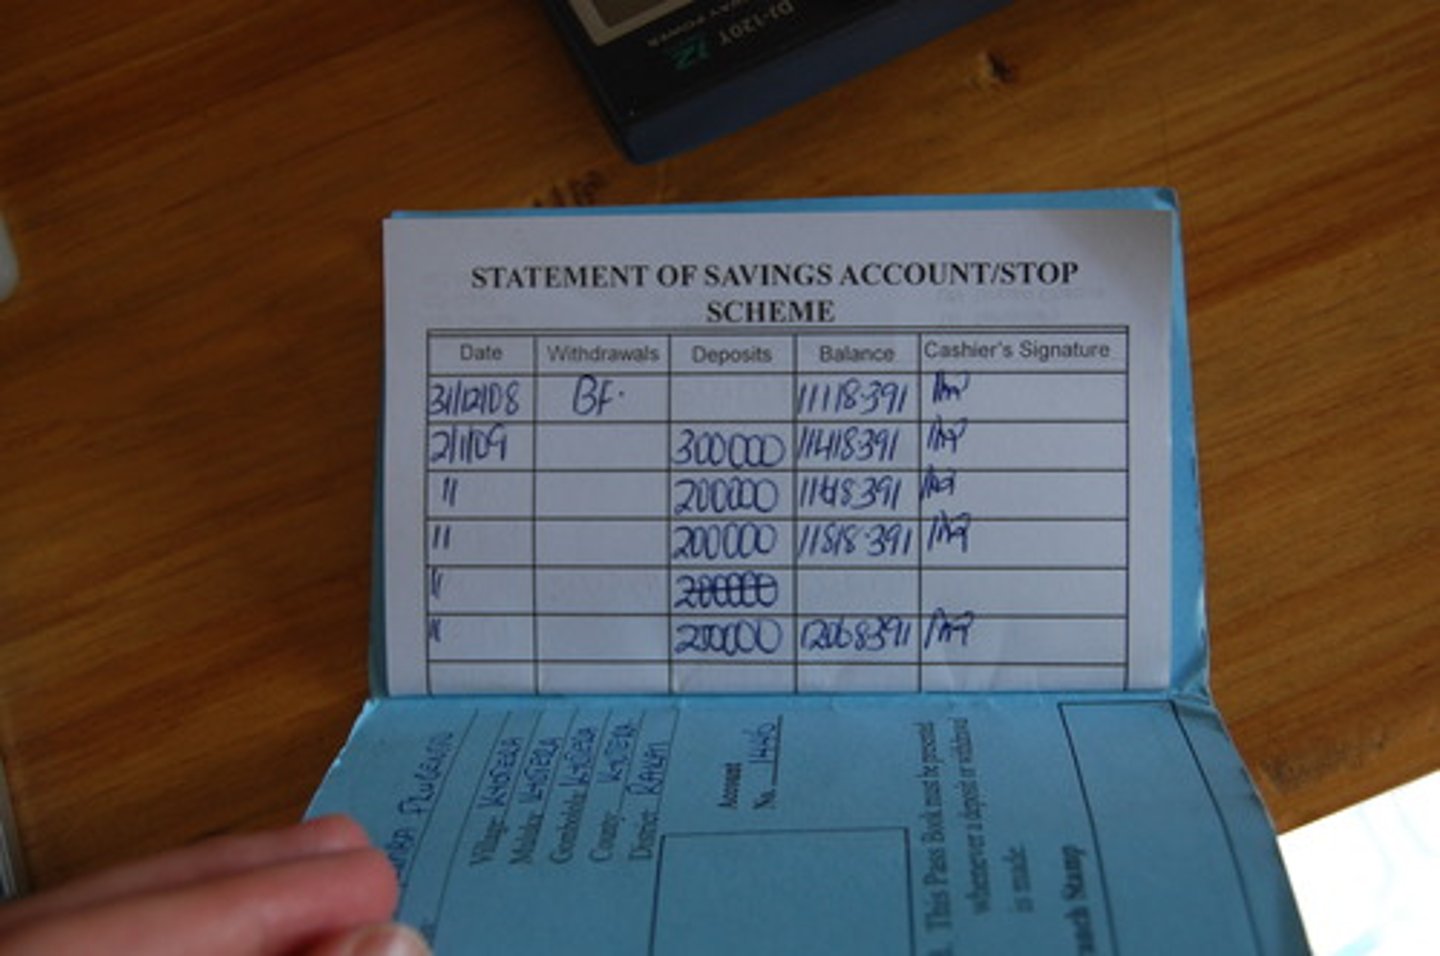 DJ-120T
STATEMENT OF SAVINGS ACCOUNT/STOP
SCHEME
Date Withdrawals Deposits Balance Cashier's Signature
31/12/08 BF. 11118391
2/1/09 300000 11418391
" 200000 11618391
" 200000 11818391
" 200000
" 250000 12068391
Village:
Muluka:
Gombolola:
County:
District: RAKAI
Account
No. 1446
This Pass Book must be presented
whenever a deposit or withdrawal
is made.
Branch Stamp